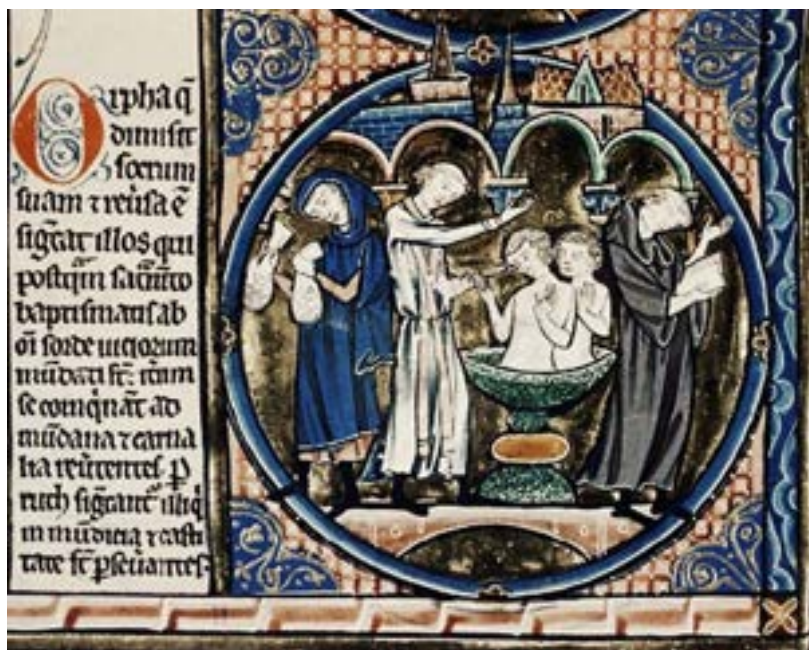 Orpha q̄
dimisit
socrum
suam ⁊ reũsa ē
sigͣt illos qui
postq̄m sac̄m̄to
baptismatis ab
om̄i sorde uiciorum
mūdati st̄: itͥum
se coinq̄nāt ad
mūdana ⁊ carna
lia reũtentes ꝑ
ruth sigͣnt̄ illi q̄
in mūdicia ⁊ casti
tate st̄ ꝑseũantes